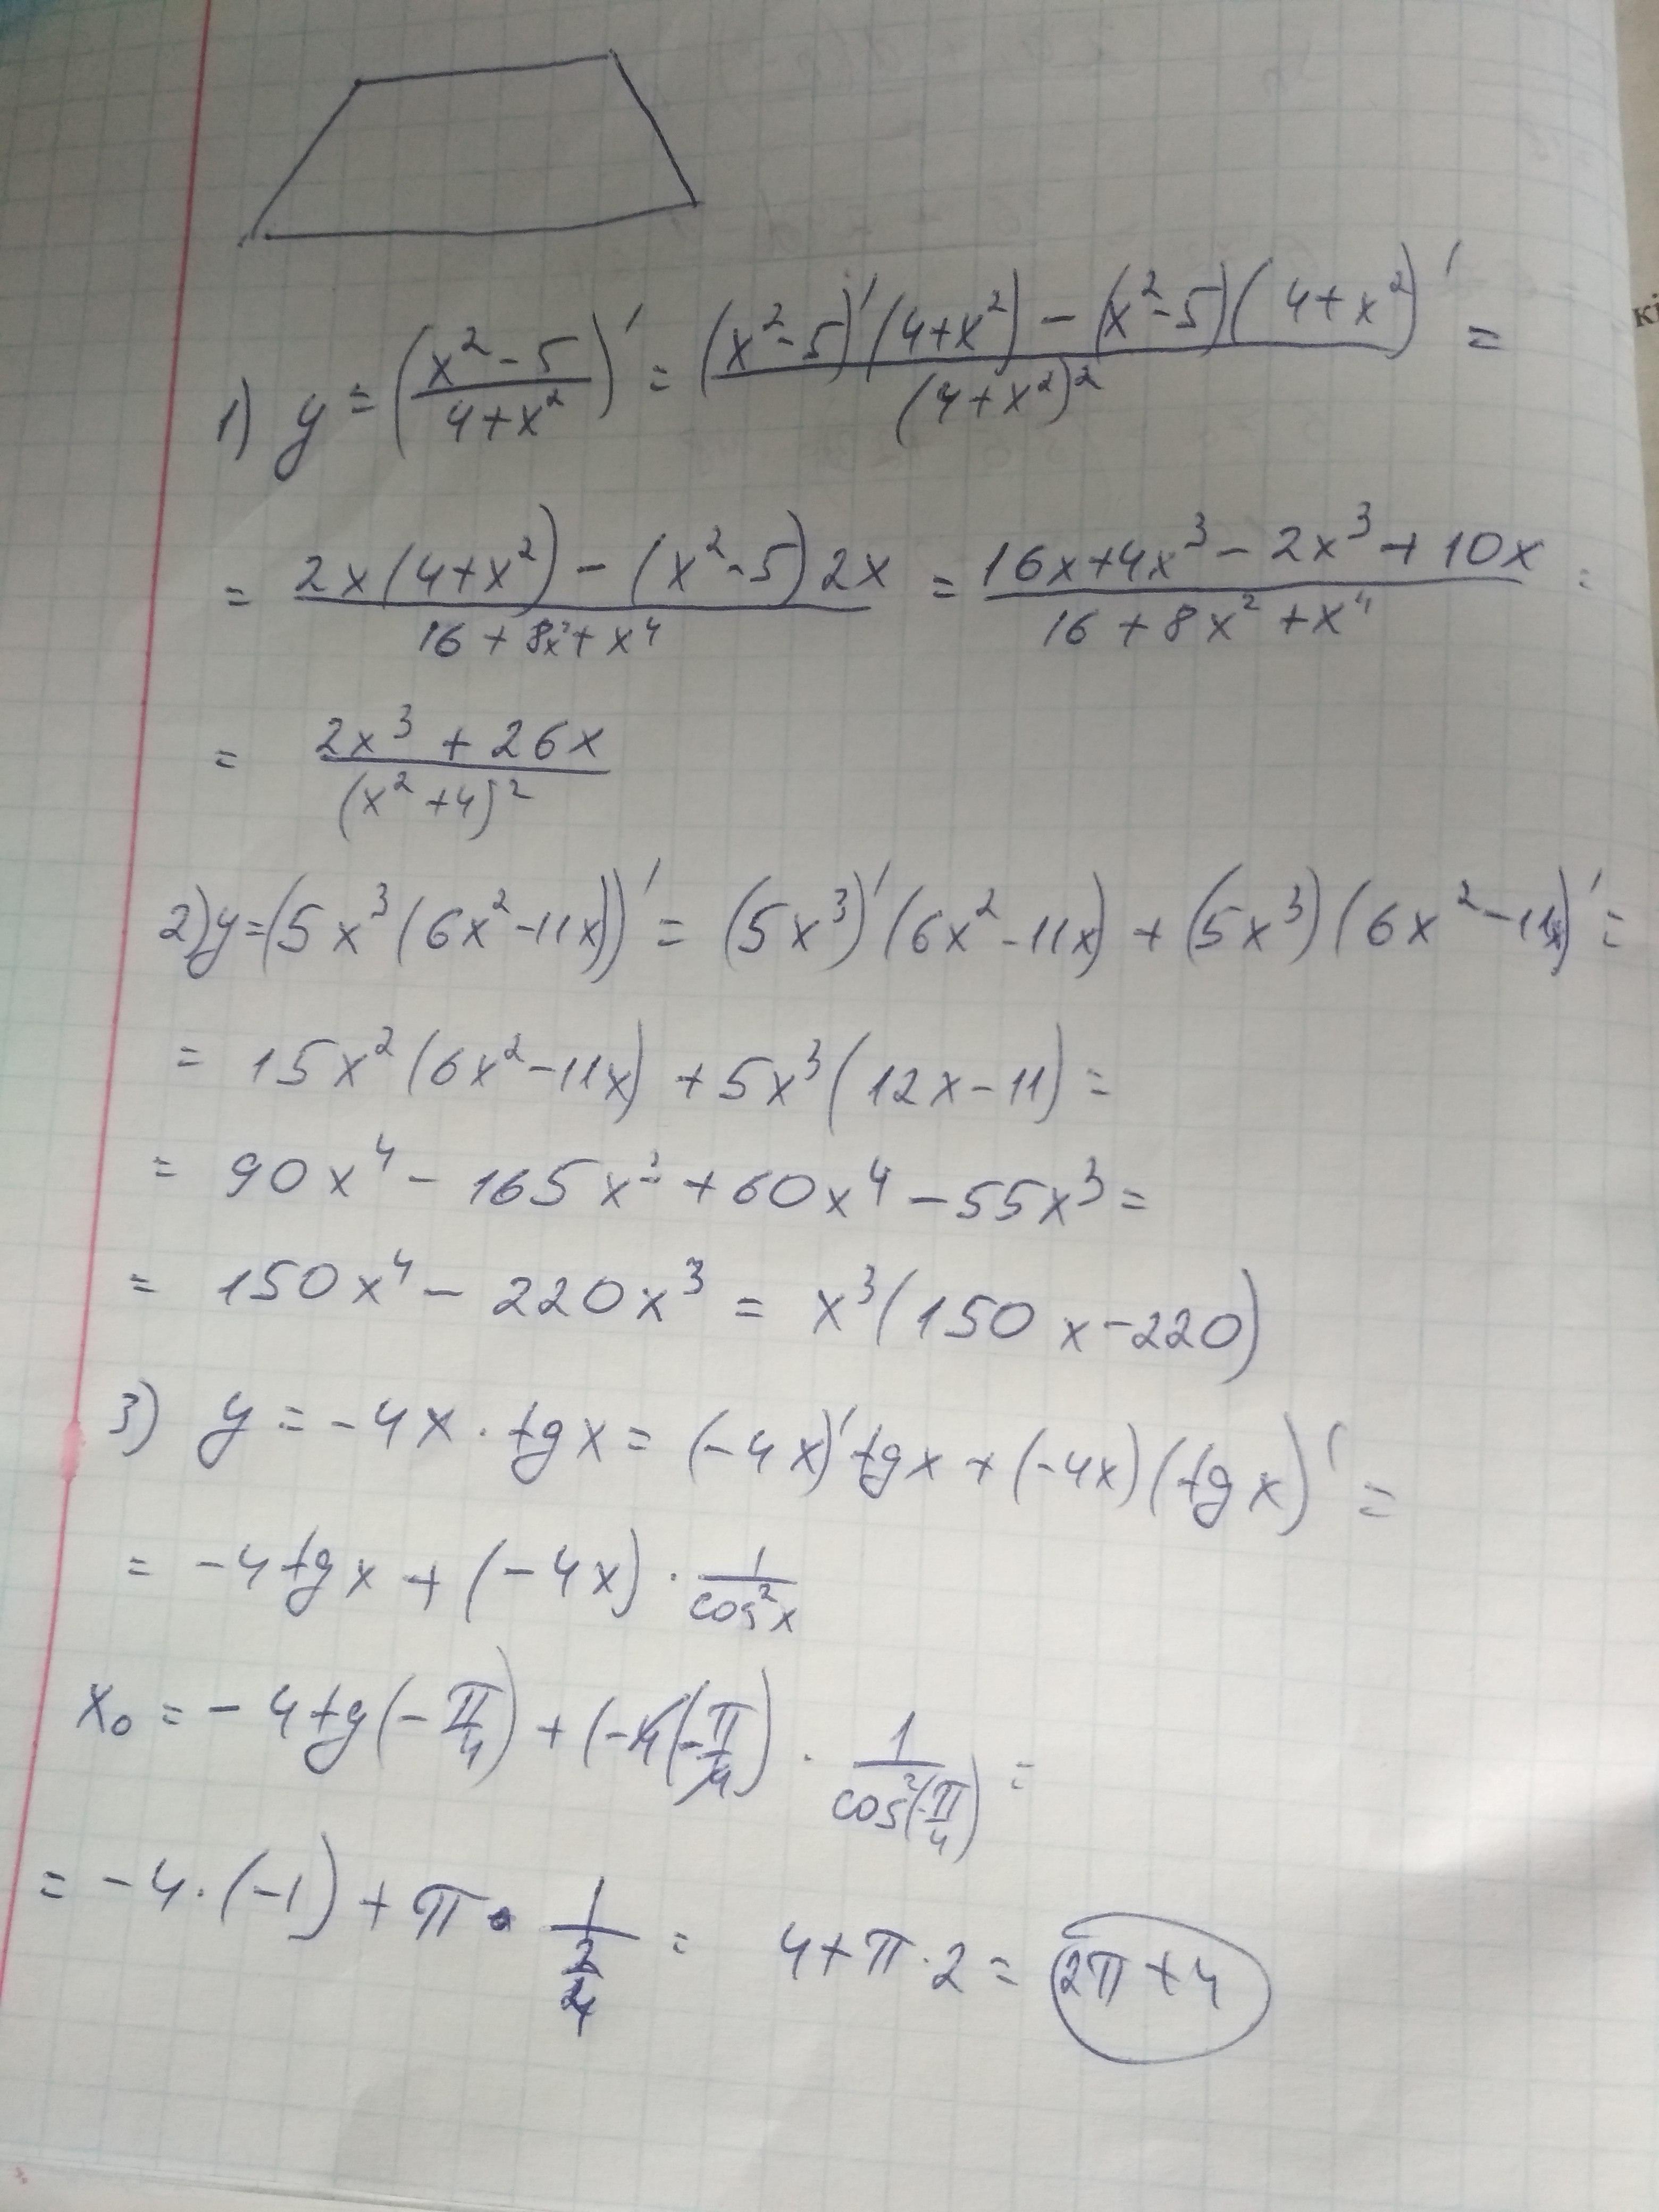 кі
1) y = (x² - 5 / 4 + x²)' = (x² - 5)'(4 + x²) - (x² - 5)(4 + x²)' / (4 + x²)² =
= 2x(4 + x²) - (x² - 5)2x / 16 + 8x² + x⁴ = 16x + 4x³ - 2x³ + 10x / 16 + 8x² + x⁴ =
= 2x³ + 26x / (x² + 4)²
2) y = (5x³(6x² - 11x))' = (5x³)'(6x² - 11x) + (5x³)(6x² - 11x)' =
= 15x²(6x² - 11x) + 5x³(12x - 11) =
= 90x⁴ - 165x³ + 60x⁴ - 55x³ =
= 150x⁴ - 220x³ = x³(150x - 220)
3) y = -4x · tgx = (-4x)'tgx + (-4x)(tgx)' =
= -4tgx + (-4x) · 1/cos²x
x₀ = -4tg(-π/4) + (-4(-π/4) · 1/cos²(-π/4) =
= -4 · (-1) + π · 1/(2/4) = 4 + π · 2 = 2π + 4